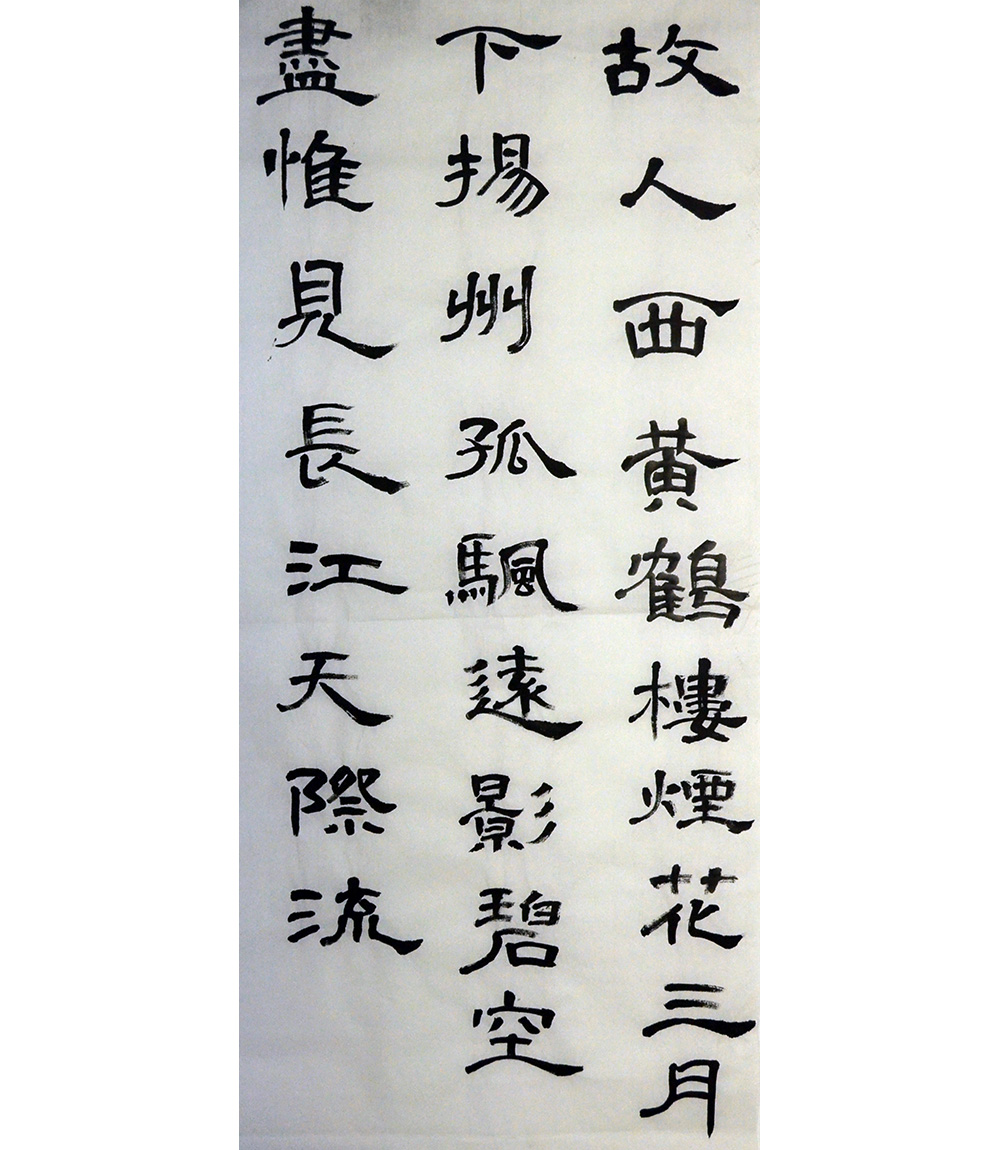 故人西黄鶴樓煙花三月
下揚州孤颿遠影碧空
盡惟見長江天際流